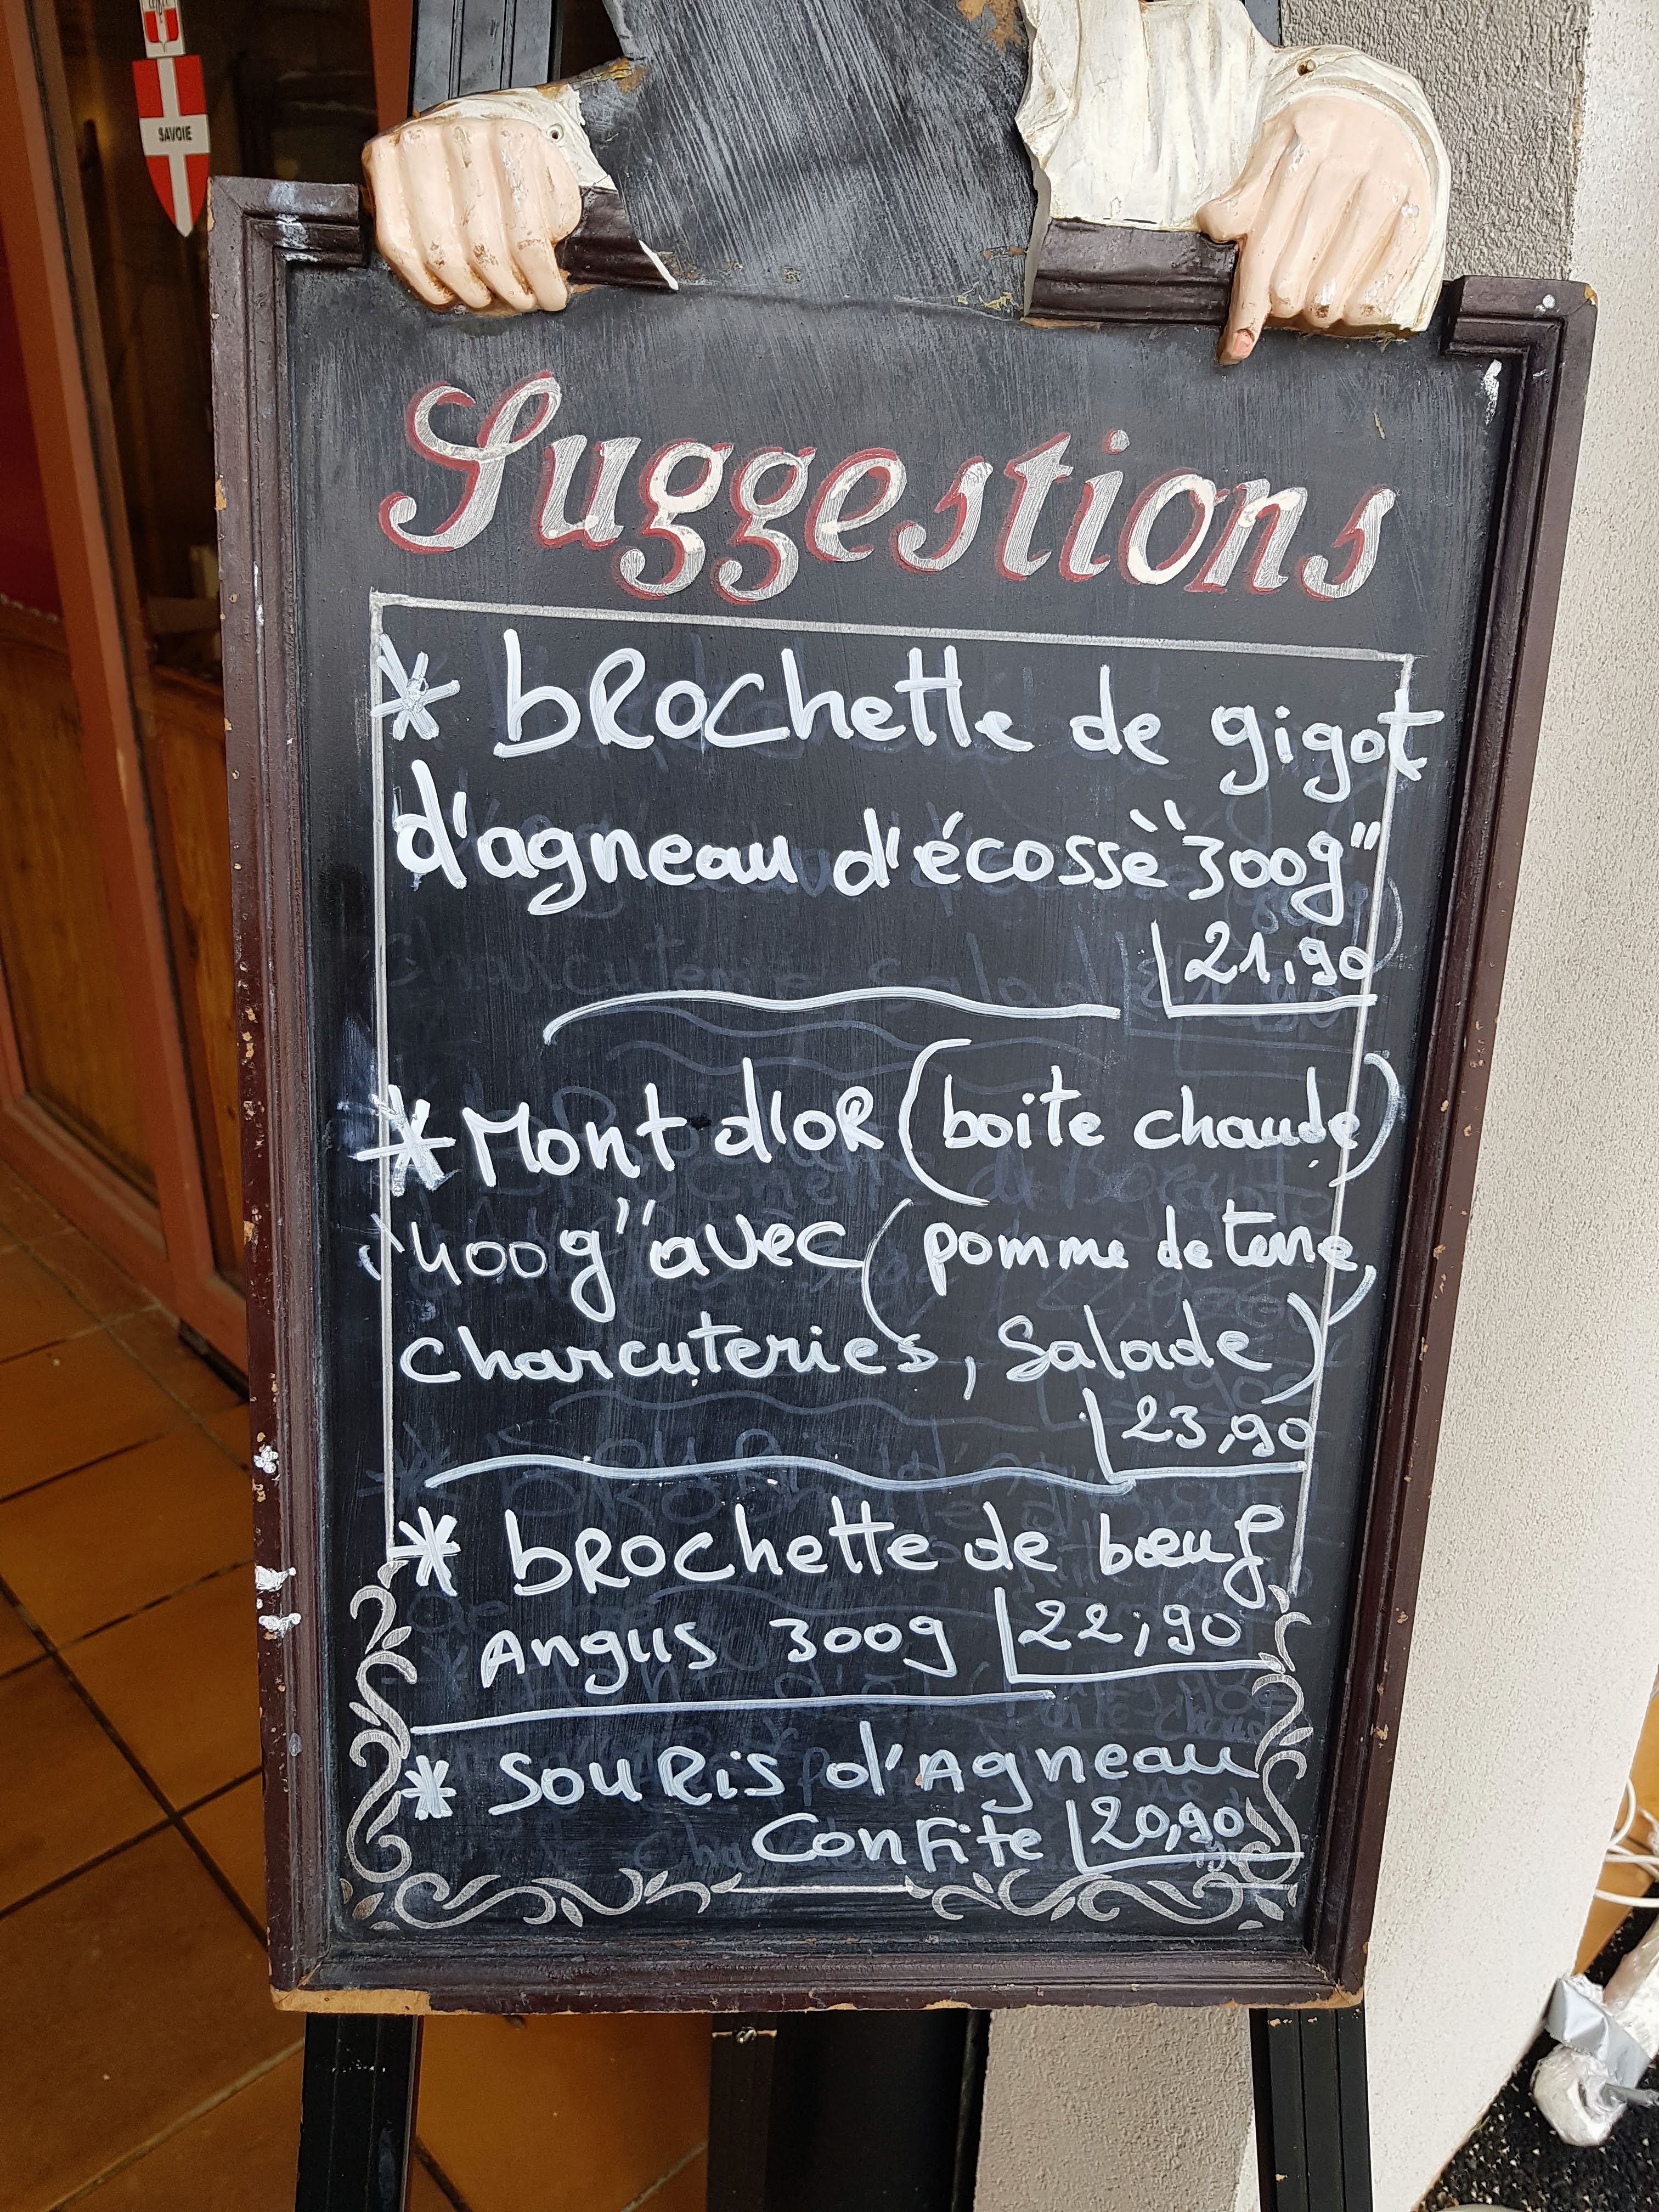 SAVOIE
Suggestions
* bROchette de gigot
d'agneau d'écosse "300g"
21,90
* Mont d'OR (boite chaude)
"400g" avec (pomme de terre,
charcuteries, Salade)
23,90
* bROchette de bœuf
Angus 300g 22,90
* souRis d'Agneau
Confite 20,90